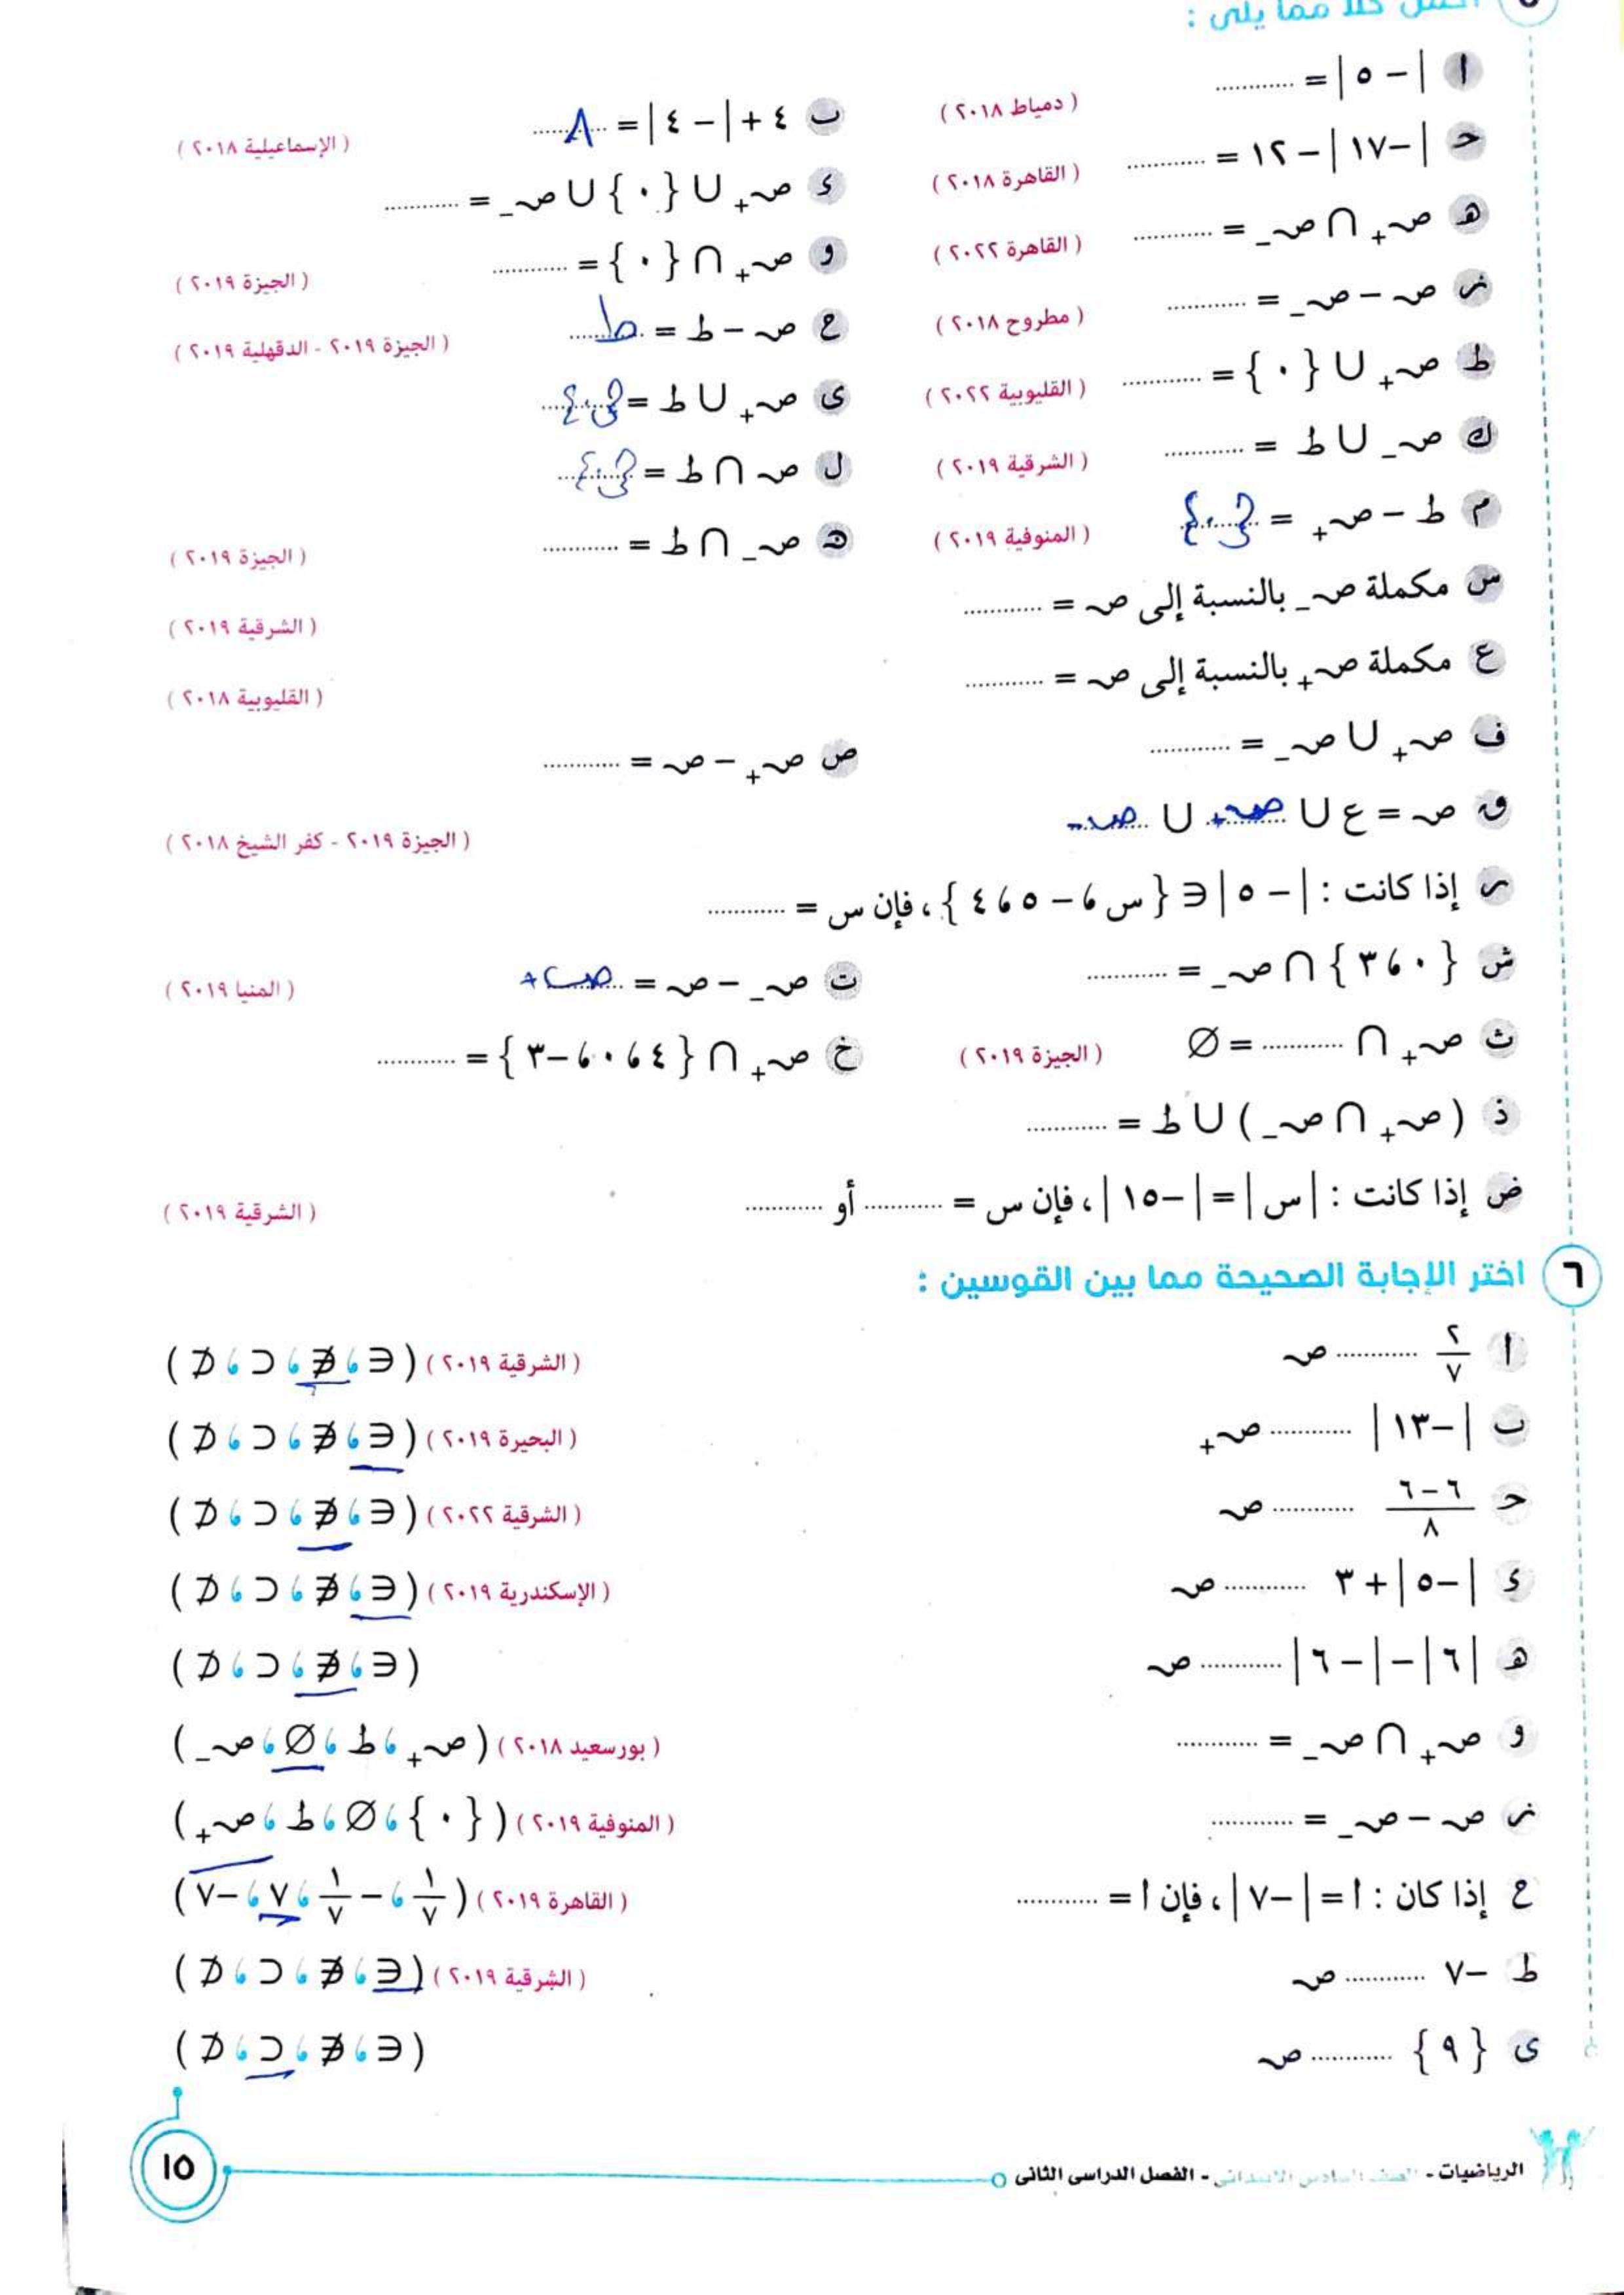 أكمل كلًا مما يلى :
أ | − ٥ | = ............ ( دمياط ٢٠١٨ )
ب ٤ + | − ٤ | = ٨ ( الإسماعيلية ٢٠١٨ )
حـ | −١٧ | − ١٢ = ............ ( القاهرة ٢٠١٨ )
ء صـ+ ∪ { ٠ } ∪ صـ− = ............
هـ صـ+ ∩ صـ− = ............ ( القاهرة ٢٠٢٢ )
و صـ+ ∩ { ٠ } = ............ ( الجيزة ٢٠١٩ )
ز صـ − صـ− = ............ ( مطروح ٢٠١٨ )
ح صـ − ط = ط ( الجيزة ٢٠١٩ - الدقهلية ٢٠١٩ )
ط صـ+ ∪ { ٠ } = ............ ( القليوبية ٢٠٢٢ )
ى صـ+ ∪ ط = {٠}
ك صـ− ∪ ط = ............ ( الشرقية ٢٠١٩ )
ل صـ ∩ ط = {٠}
م ط − صـ+ = {٠} ( المنوفية ٢٠١٩ )
ن صـ− ∩ ط = ............ ( الجيزة ٢٠١٩ )
س مكملة صـ− بالنسبة إلى صـ = ............ ( الشرقية ٢٠١٩ )
ع مكملة صـ+ بالنسبة إلى صـ = ............ ( القليوبية ٢٠١٨ )
ف صـ+ ∪ صـ− = ............
ص صـ+ − صـ = ............
ق صـ = ع ∪ صـ+ ∪ صـ− ( الجيزة ٢٠١٩ - كفر الشيخ ٢٠١٨ )
ر إذا كانت : | − ٥ | ∈ { س ، − ٥ ، ٤ } ، فإن س = ............
ش { ٠ ، ٣ } ∩ صـ− = ............
ت صـ− − صـ = صـ+ ( المنيا ٢٠١٩ )
ث صـ+ ∩ ............ = ∅ ( الجيزة ٢٠١٩ )
خ صـ+ ∩ { ٤ ، ٠ ، −٣ } = ............
ذ ( صـ+ ∩ صـ− ) ∪ ط = ............
ض إذا كانت : | س | = | −١٥ | ، فإن س = ............ أو ............ ( الشرقية ٢٠١٩ )
٦ اختر الإجابة الصحيحة مما بين القوسين :
أ ٢/٧ ............ صـ ( الشرقية ٢٠١٩ ) ( ∈ ، ∉ ، ⊂ ، ⊄ )
ب | −١٣ | ............ صـ+ ( البحيرة ٢٠١٩ ) ( ∈ ، ∉ ، ⊂ ، ⊄ )
حـ ٦−٦/٨ ............ صـ ( الشرقية ٢٠٢٢ ) ( ∈ ، ∉ ، ⊂ ، ⊄ )
ء | −٥ | + ٣ ............ صـ ( الإسكندرية ٢٠١٩ ) ( ∈ ، ∉ ، ⊂ ، ⊄ )
هـ | ٦ | − | − ٦ | ............ صـ ( ∈ ، ∉ ، ⊂ ، ⊄ )
و صـ+ ∩ صـ− = ............ ( بورسعيد ٢٠١٨ ) ( صـ+ ، ط ، ∅ ، صـ− )
ز صـ − صـ− = ............ ( المنوفية ٢٠١٩ ) ( { ٠ } ، ∅ ، ط ، صـ+ )
ح إذا كان : أ = | −٧ | ، فإن أ = ............ ( القاهرة ٢٠١٩ ) ( ١/٧ ، − ١/٧ ، ٧ ، −٧ )
ط −٧ ............ صـ ( الشرقية ٢٠١٩ ) ( ∈ ، ∉ ، ⊂ ، ⊄ )
ى { ٩ } ............ صـ ( ∈ ، ∉ ، ⊂ ، ⊄ )
الرياضيات - الصف السادس الابتدائى - الفصل الدراسى الثانى
١٥